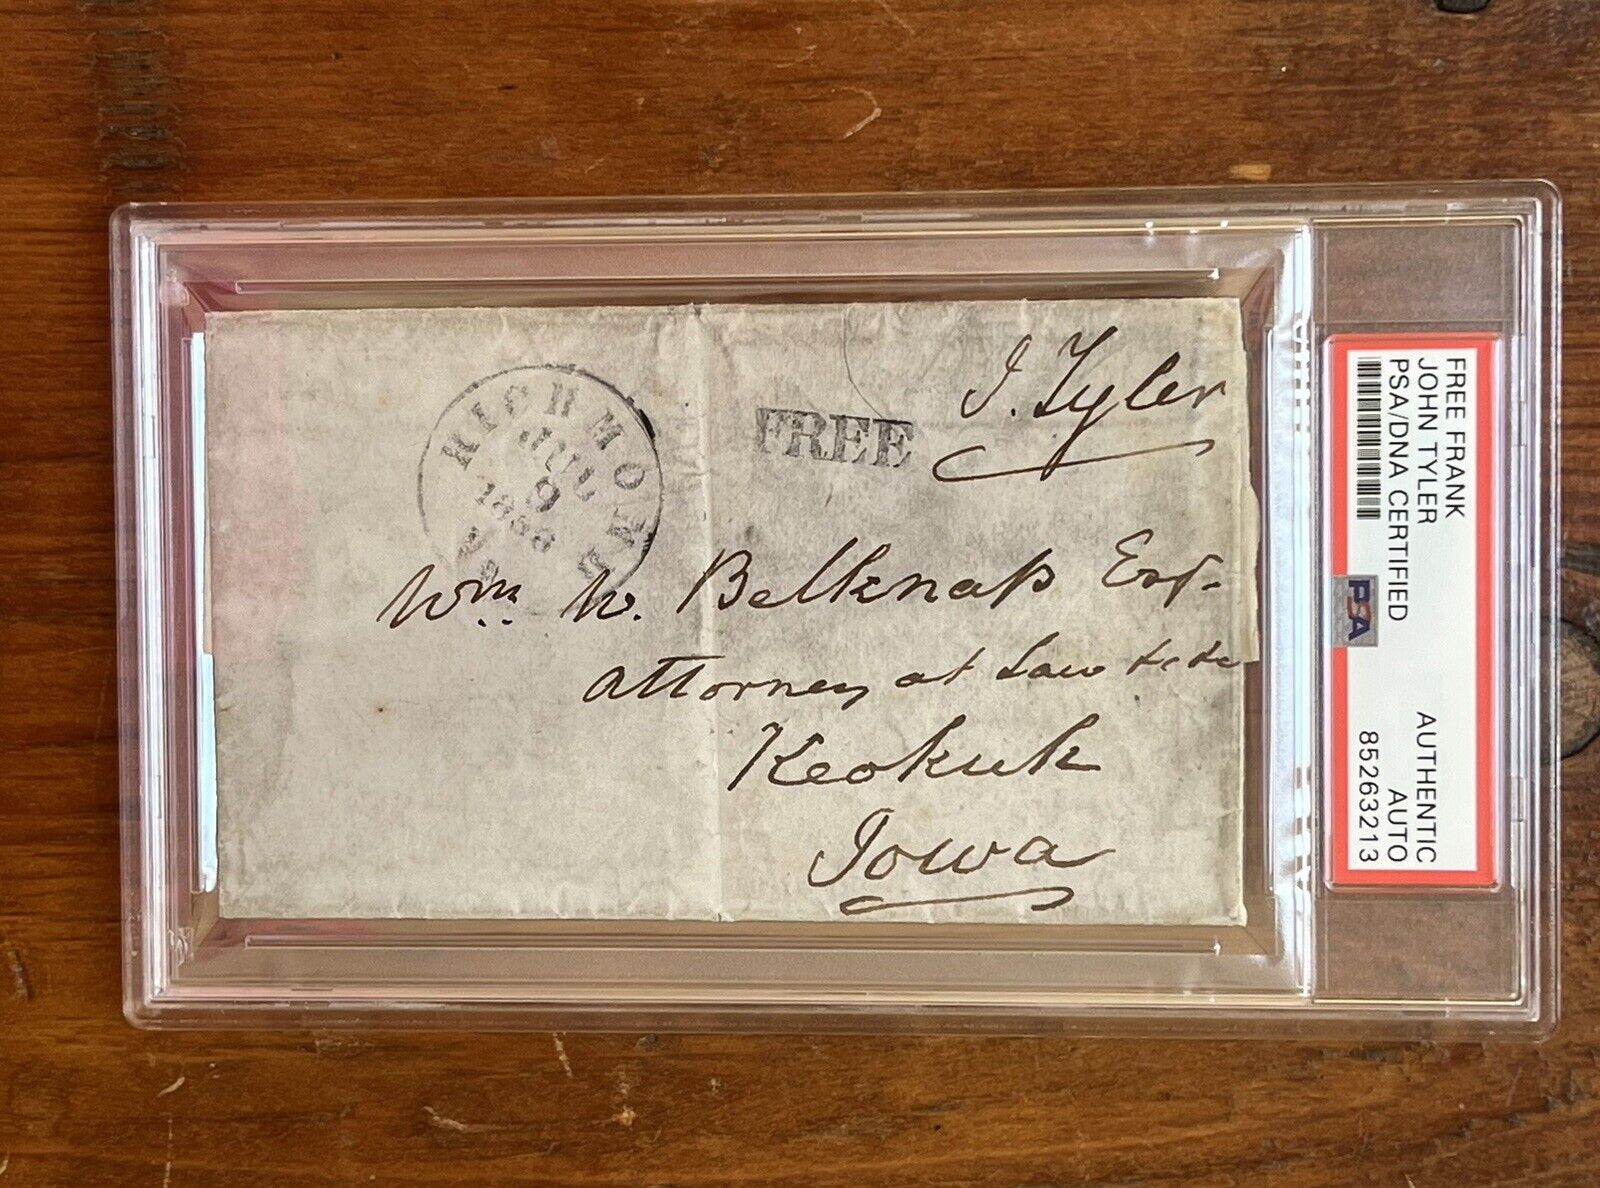 J. Tyler
FREE
RICHMOND
JUL
9
Wm. W. Belknap Esq.
Attorney at Law &c &c
Keokuk
Iowa
FREE FRANK
JOHN TYLER
PSA/DNA CERTIFIED
AUTHENTIC
AUTO
85263213
PSA